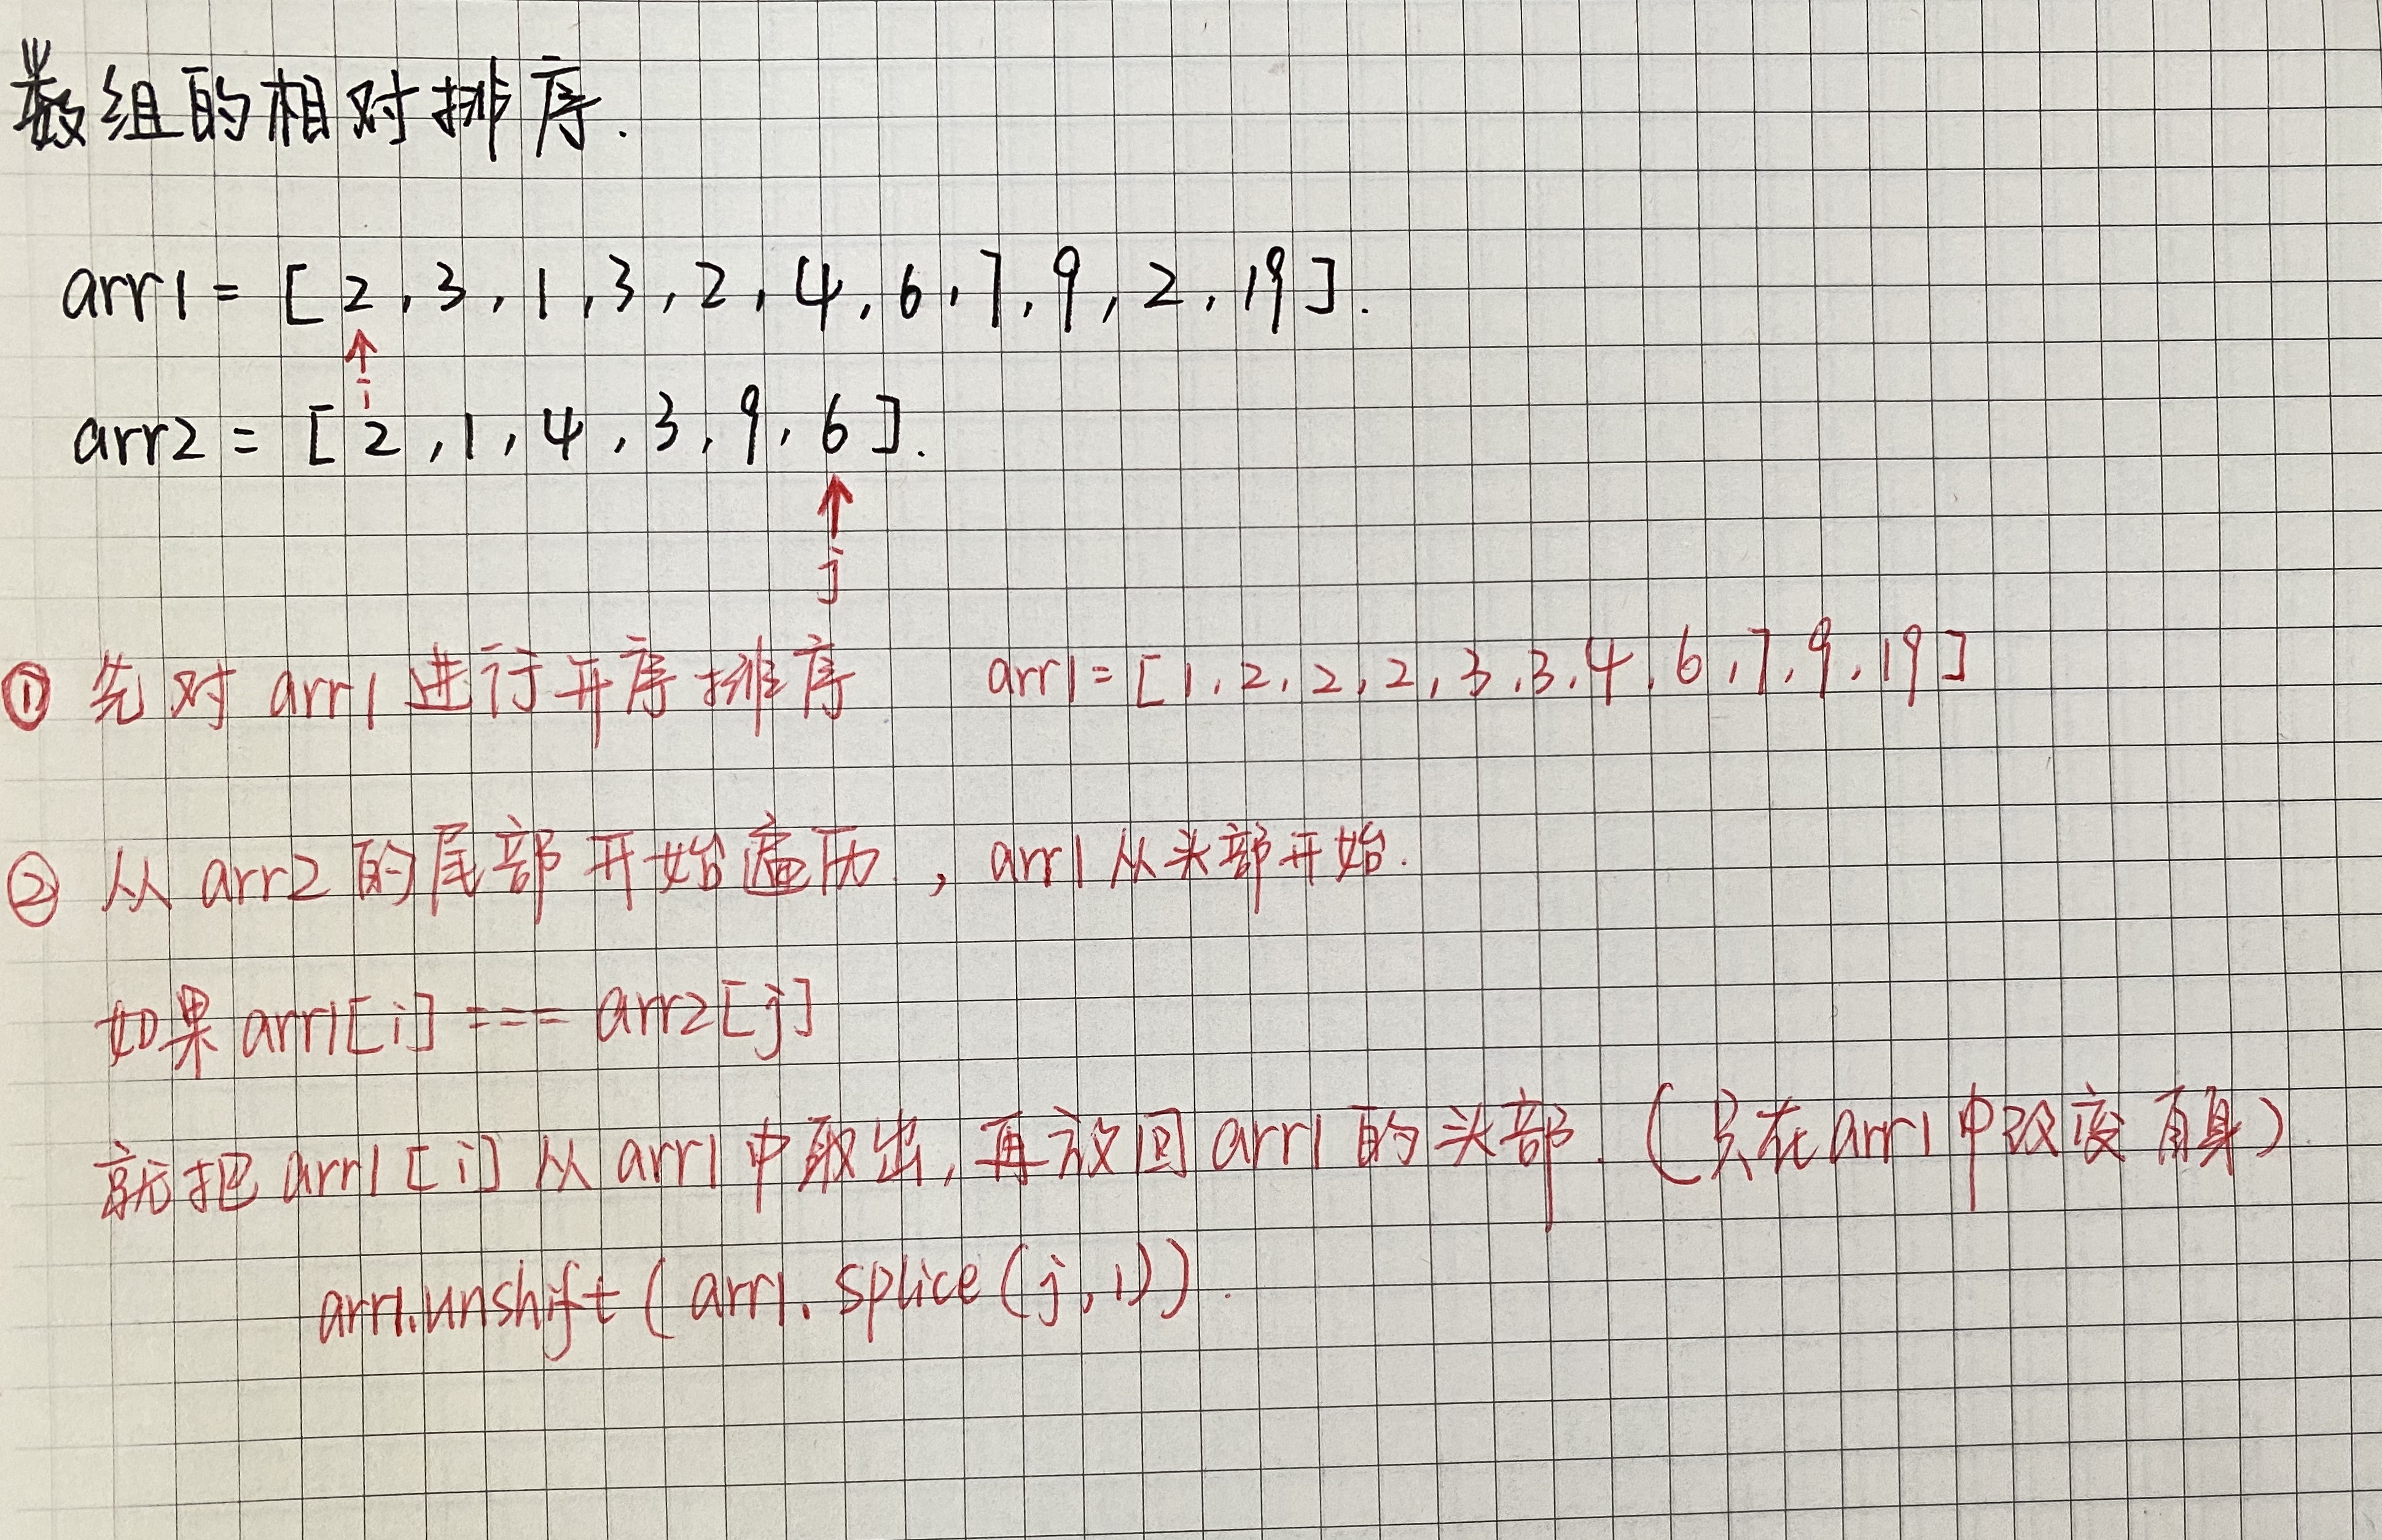 数组的相对排序.
arr1 = [ 2 , 3 , 1 , 3 , 2 , 4 , 6 , 7 , 9 , 2 , 19 ].
i
arr2 = [ 2 , 1 , 4 , 3 , 9 , 6 ].
j
① 先对 arr1 进行升序排序 arr1 = [ 1, 2, 2, 2, 3, 3, 4, 6, 7, 9, 19 ]
② 从 arr2 的尾部开始遍历 , arr1 从头部开始.
如果 arr1[i] === arr2[j]
就把 arr1 [i] 从 arr1 中取出, 再放回 arr1 的头部. (只在 arr1 中改变自身)
arr1.unshift ( arr1. splice (j, 1)) .